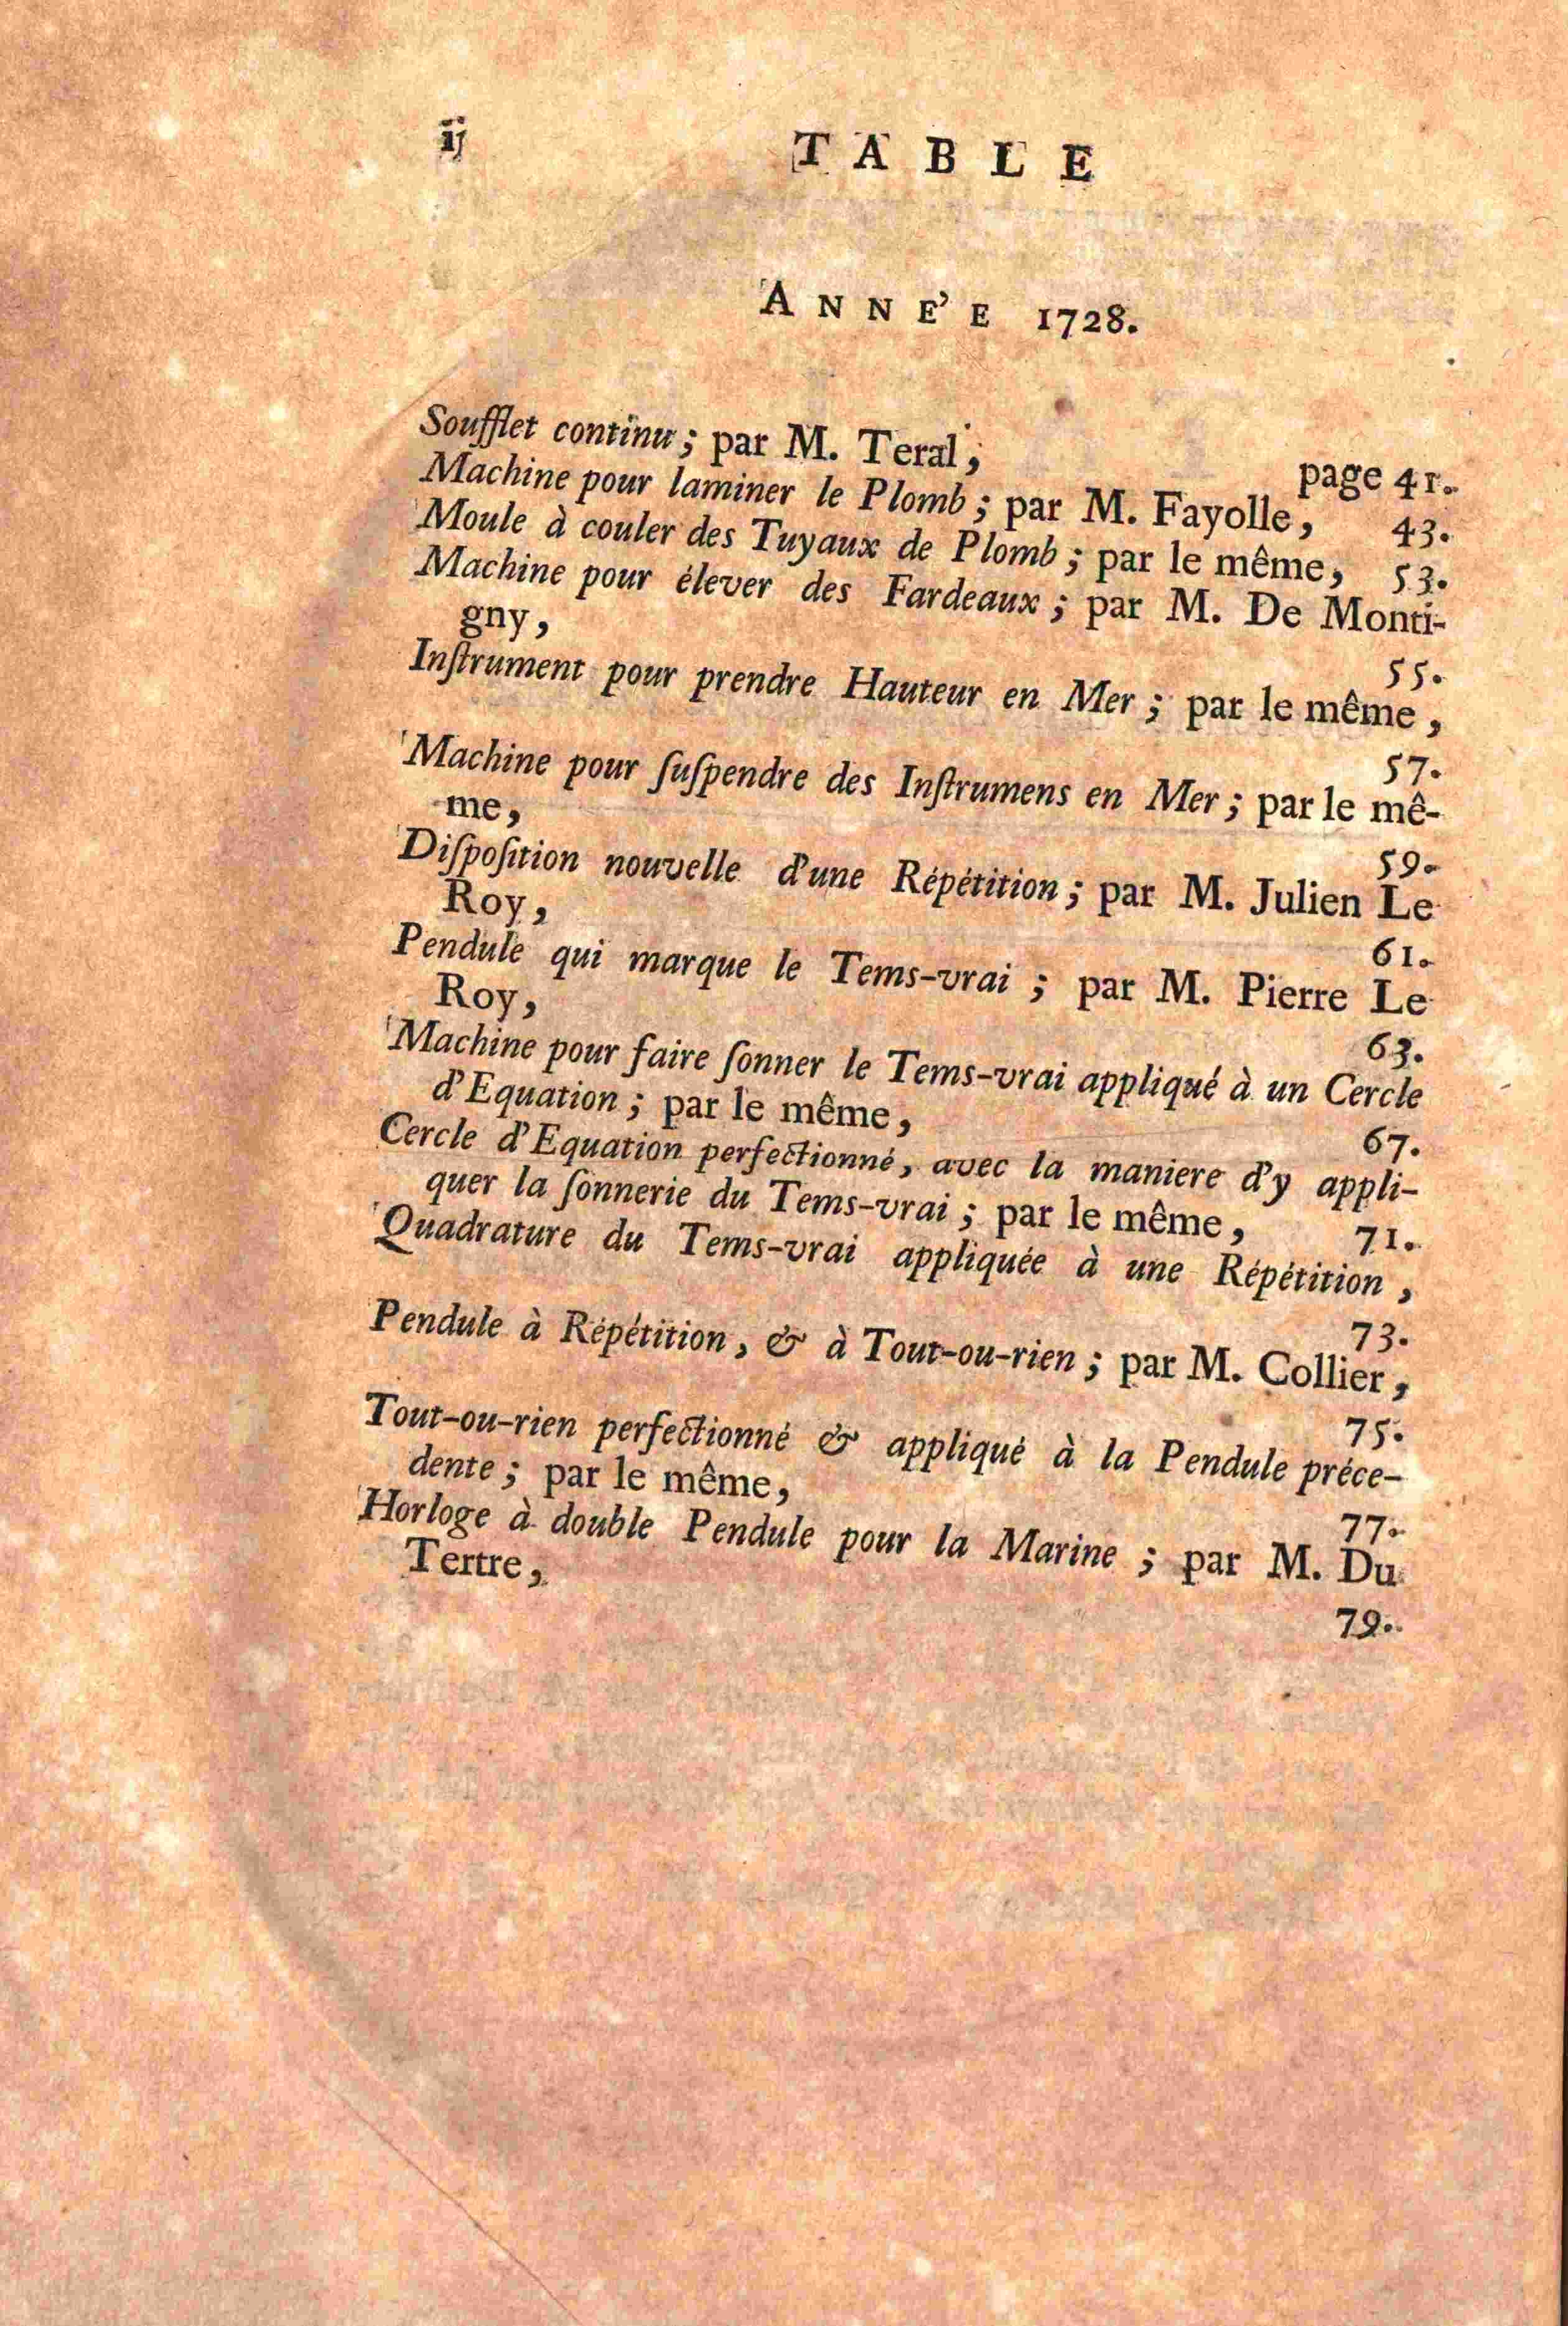 ij
TABLE
ANNE'E 1728.
Soufflet continu ; par M. Teral, page 41.
Machine pour laminer le Plomb ; par M. Fayolle, 43.
Moule à couler des Tuyaux de Plomb ; par le même, 53.
Machine pour élever des Fardeaux ; par M. De Monti-
gny, 55.
Inſtrument pour prendre Hauteur en Mer ; par le même,
57.
Machine pour ſuſpendre des Inſtrumens en Mer ; par le mê-
me, 59.
Diſpoſition nouvelle d'une Répétition ; par M. Julien Le
Roy, 61.
Pendule qui marque le Tems-vrai ; par M. Pierre Le
Roy, 63.
Machine pour faire ſonner le Tems-vrai appliqué à un Cercle
d'Equation ; par le même, 67.
Cercle d'Equation perfectionné, avec la maniere d'y appli-
quer la ſonnerie du Tems-vrai ; par le même, 71.
Quadrature du Tems-vrai appliquée à une Répétition,
73.
Pendule à Répétition, & à Tout-ou-rien ; par M. Collier,
75.
Tout-ou-rien perfectionné & appliqué à la Pendule préce-
dente ; par le même, 77.
Horloge à double Pendule pour la Marine ; par M. Du
Tertre, 79.